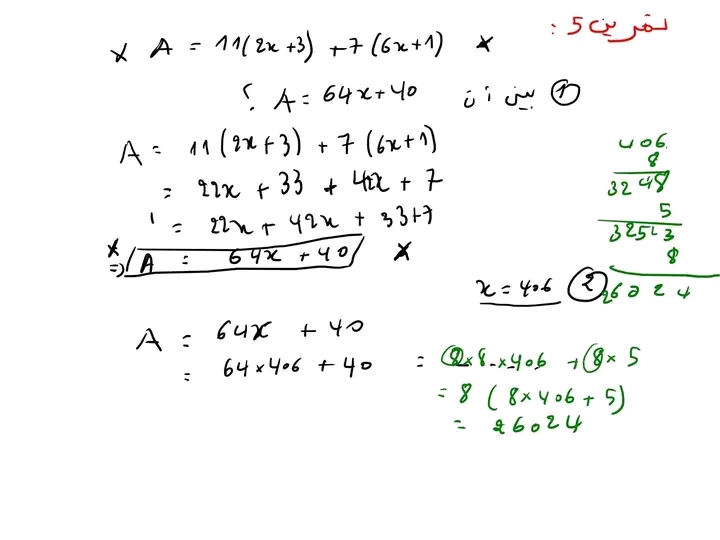 تمرين 5 :
× A = 11(2x+3) + 7(6x+1) ×
① بين أن A = 64x+40 ؟
A = 11(2x+3) + 7(6x+1)
= 22x + 33 + 42x + 7
= 22x + 42x + 33+7
⇒ A = 64x + 40 ×
② x = 406
A = 64x + 40
= 64×406 + 40 = 8×8×406 + 8×5
= 8 (8×406 + 5)
= 26024
406
8
3248
5
3253
8
26024